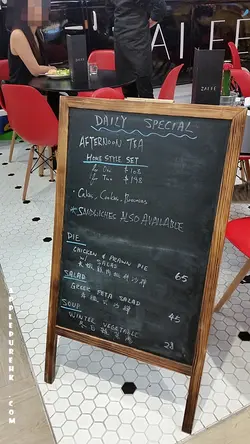 DAILY SPECIAL
AFTERNOON TEA
HOME STYLE SET
for One $108
for Two $198
• Cakes, Cookies, Brownies
* SANDWICHES ALSO AVAILABLE
PIE
CHICKEN & PRAWN PIE
w/ SALAD 65
SALAD
GREEK FETA SALAD 45
SOUP
WINTER VEGETABLE 28
APPLEPUREHK.COM